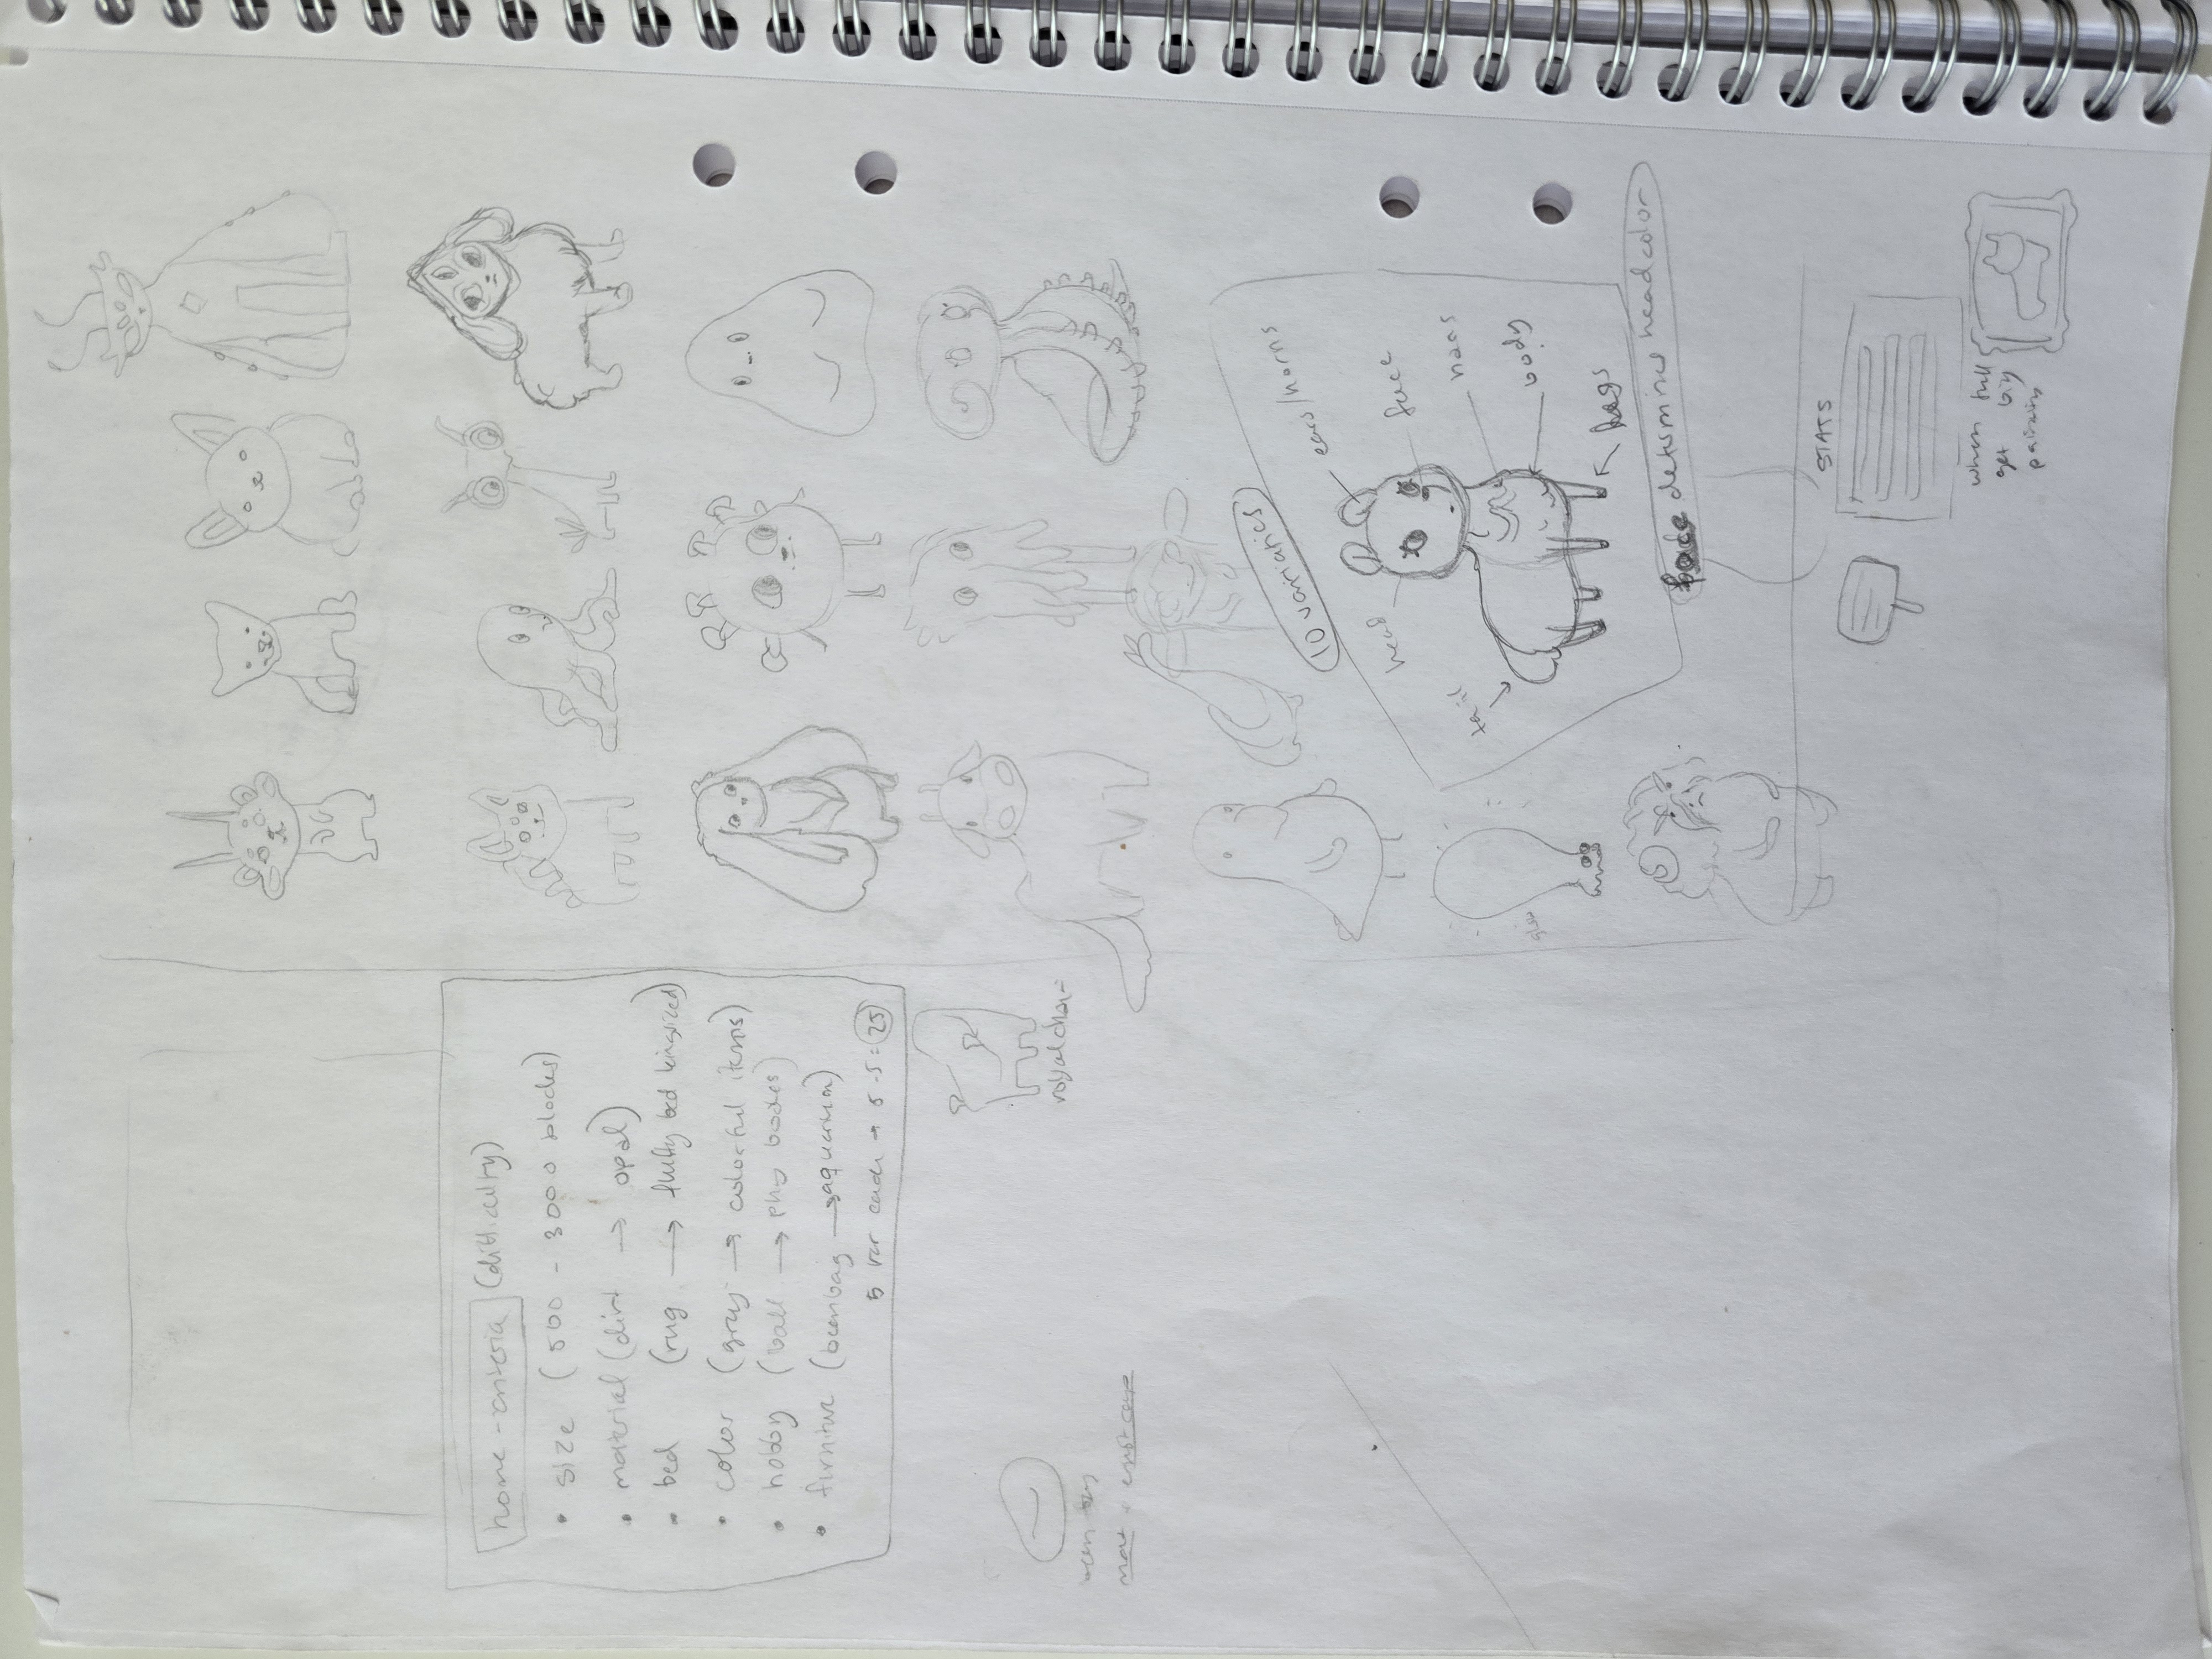 home-criteria (difficulty)
• size (500 - 3000 blocks)
• material (dirt → opal)
• bed (rug → fluffy bed kingsized)
• color (gray → colorful items)
• hobby (ball →
• furnitur (beanbag → aquarium)
5 var each → 5·5=25
royal chair
10 variatics
ears/horns
head
face
tail
body
legs
face determines head color
STATS
when full
get big